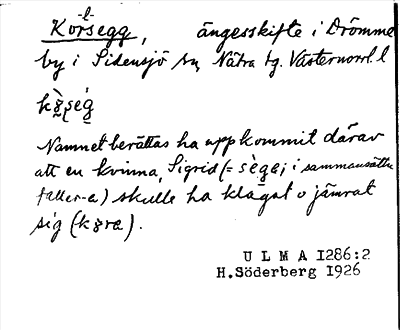 -l-
Korsegg, ängesskifte i Drömme
by i Sidensjö sn, Nätra tg. Västernorrl. l
Namnet berättas ha uppkommit därav
att en kvinna, Sigrid (= sègaj i sammansättn
faller -a) skulle ha klagat o jämrat
sig
U L M A 1286:2
H.Söderberg 1926